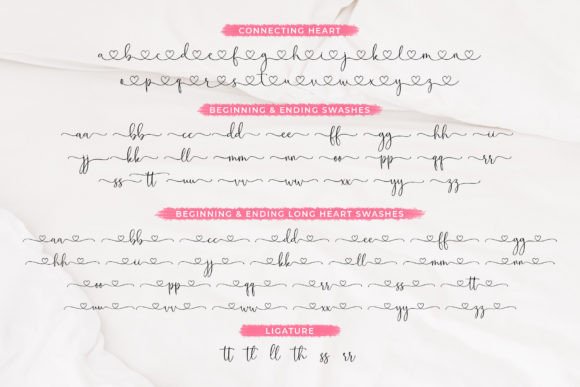 CONNECTING HEART
a b c d e f g h i j k l m n
o p q r s t u v w x y z
BEGINNING & ENDING SWASHES
aa bb cc dd ee ff gg hh ii
jj kk ll mm nn oo pp qq rr
ss tt uu vv ww xx yy zz
BEGINNING & ENDING LONG HEART SWASHES
aa bb cc dd ee ff gg
hh ii jj kk ll mm nn
oo pp qq rr ss tt
uu vv ww xx yy zz
LIGATURE
tt tl ll th ss rr